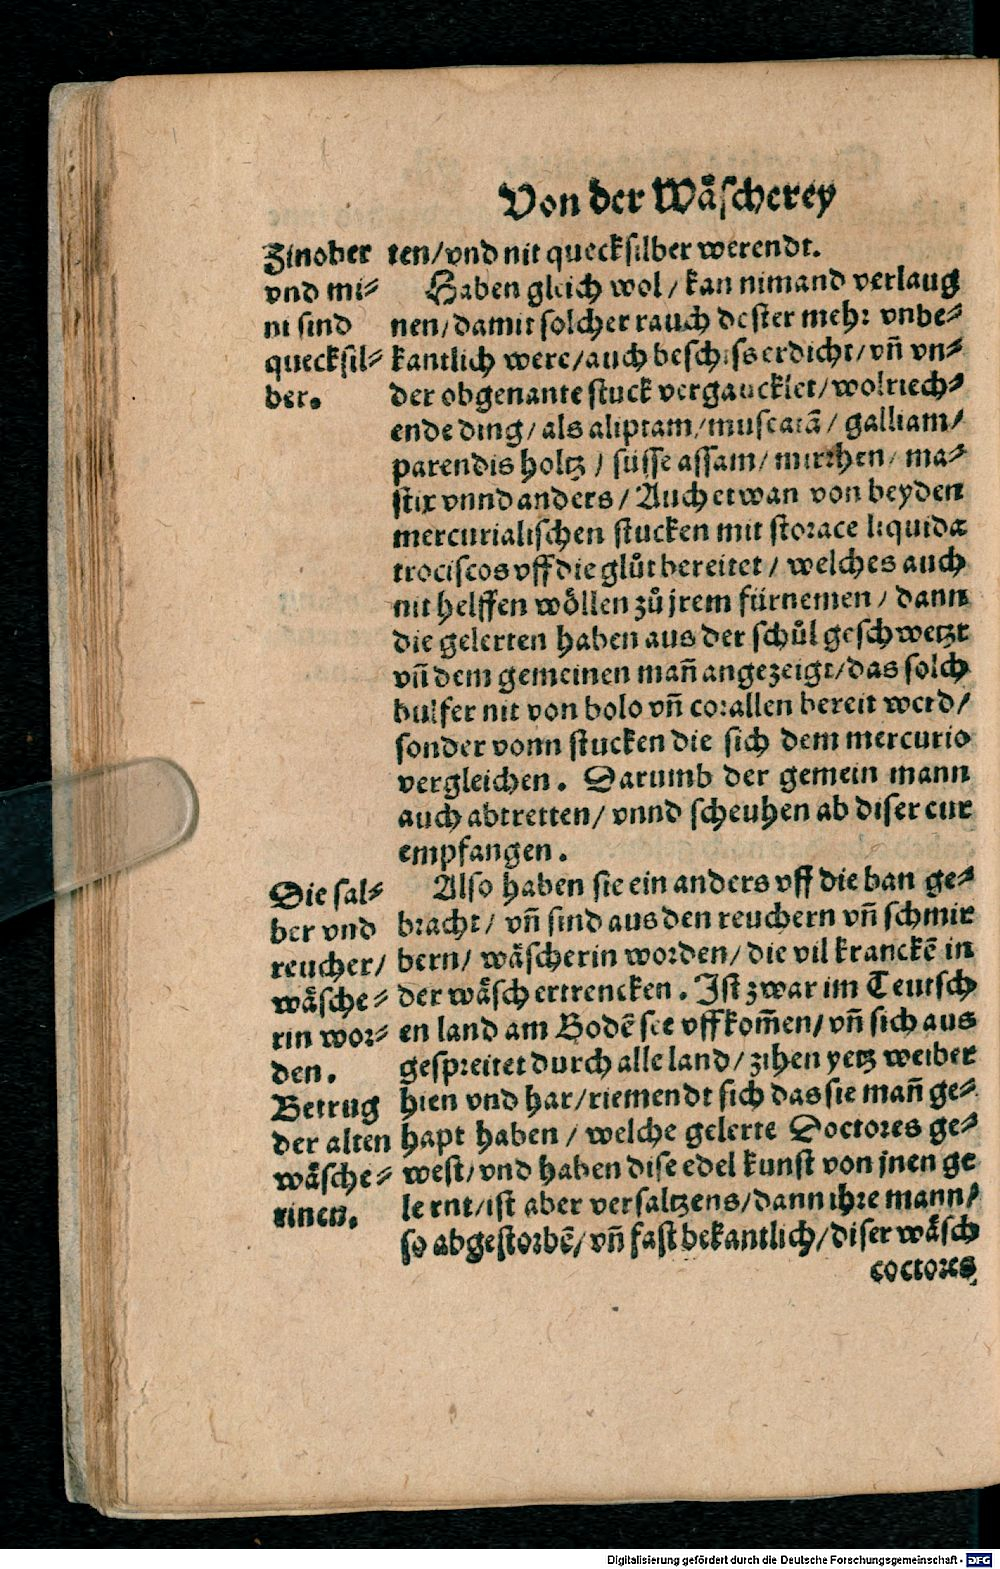 Von der Wåscherey
Zinober
vnd mi⸗
ni sind
quecksil⸗
ber.
ten/vnd nit quecksilber werendt.
Haben gleich wol/ kan nimand verlaug
nen/damit solcher rauch dester mehr vnbe⸗
kantlich were/auch beschiss erdicht/vn̄ vn⸗
der obgenante stuck vergaucklet/wolriech⸗
ende ding/ als aliptam/muscatā/ galliam/
parendis holtz/ süsse assam/ mirrhen/ ma⸗
stix vnnd anders/ Auch etwan von beyden
mercurialischen stucken mit storace liquida
trociscos vff die glůt bereitet/ welches auch
nit helffen wöllen zů jrem fürnemen/ dann
die gelerten haben aus der schůl geschwetzt
vn̄ dem gemeinen man̄ angezeigt/das solch
bulfer nit von bolo vn̄ corallen bereit werd/
sonder vonn stucken die sich dem mercurio
vergleichen. Darumb der gemein mann
auch abtretten/ vnnd scheuhen ab diser cur
empfangen.
Die sal⸗
ber vnd
reucher/
wåsche⸗
rin wor⸗
den.
Betrug
der alten
wåsche⸗
rinen.
Also haben sie ein anders vff die ban ge⸗
bracht/ vn̄ sind aus den reuchern vn̄ schmir
bern/ wåscherin worden/ die vil kranckē in
der wåsch ertrencken. Ist zwar im Teutsch
en land am Bodē see vffkom̄en/ vn̄ sich aus
gespreitet durch alle land/ zihen yetz weiber
hien vnd har/riemendt sich das sie man̄ ge⸗
hapt haben/ welche gelerte Doctores ge⸗
west/vnd haben dise edel kunst von jnen ge
lernt/ist aber versaltzens/dann ihre mann/
so abgestorbē/ vn̄ fast bekantlich/ diser wåsch
coctores
Digitalisierung gefördert durch die Deutsche Forschungsgemeinschaft - DFG